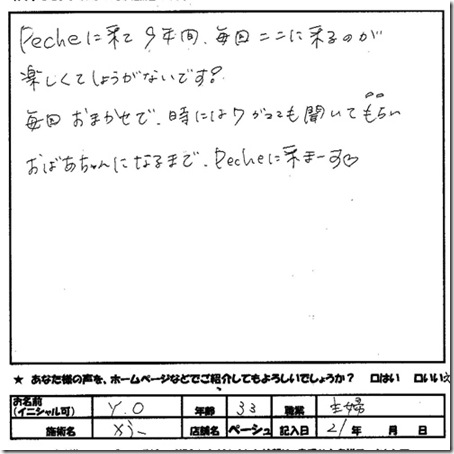 Pecheに来て9年間、毎回ここに来るのが
楽しくてしょうがないです♪
毎回おまかせで、時にはワガママも聞いてもらい
おばあちゃんになるまで、Pecheに来まーす♡
★ あなた様の声を、ホームページなどでご紹介してもよろしいでしょうか？ □はい □いいえ
お名前(イニシャル可) Y.O 年齢 33 職業 主婦
施術名 店舗名 ペーシュ 記入日 21年 月 日